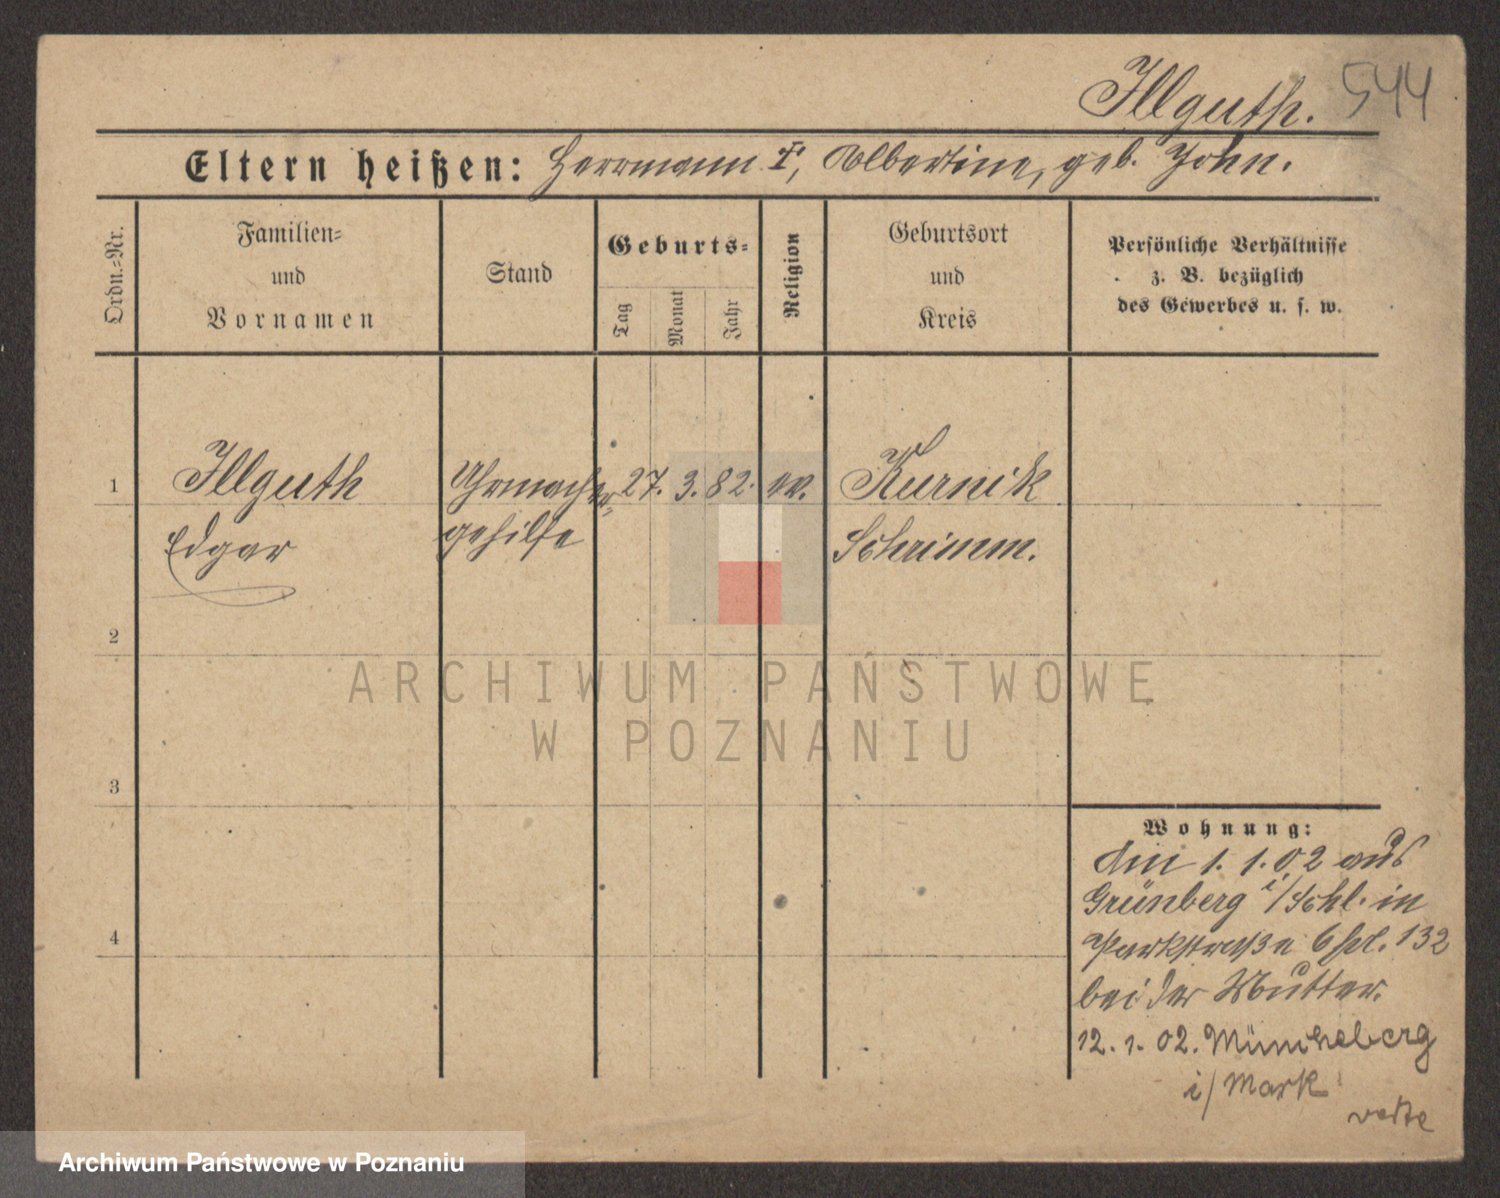 Illguth. 544
Eltern heißen: Herrmann †, Albertine, geb. John.
Ordn.-Nr.
Familien-
und
Vornamen
Stand
Geburts-
Tag
Monat
Jahr
Religion
Geburtsort
und
Kreis
Persönliche Verhältnisse
z. B. bezüglich
des Gewerbes u. s. w.
1
Illguth
Edgar
Uhrmacher-
gehilfe
27. 3. 82. ev.
Kurnik
Schrimm.
2
3
4
ARCHIWUM PAŃSTWOWE
W POZNANIU
Wohnung:
Am 1. 1. 02 aus
Grünberg i/Schl. in
Parkstraße 6 pt. 132
bei der Mutter.
12. 1. 02. Müncheberg
i/Mark
Archiwum Państwowe w Poznaniu